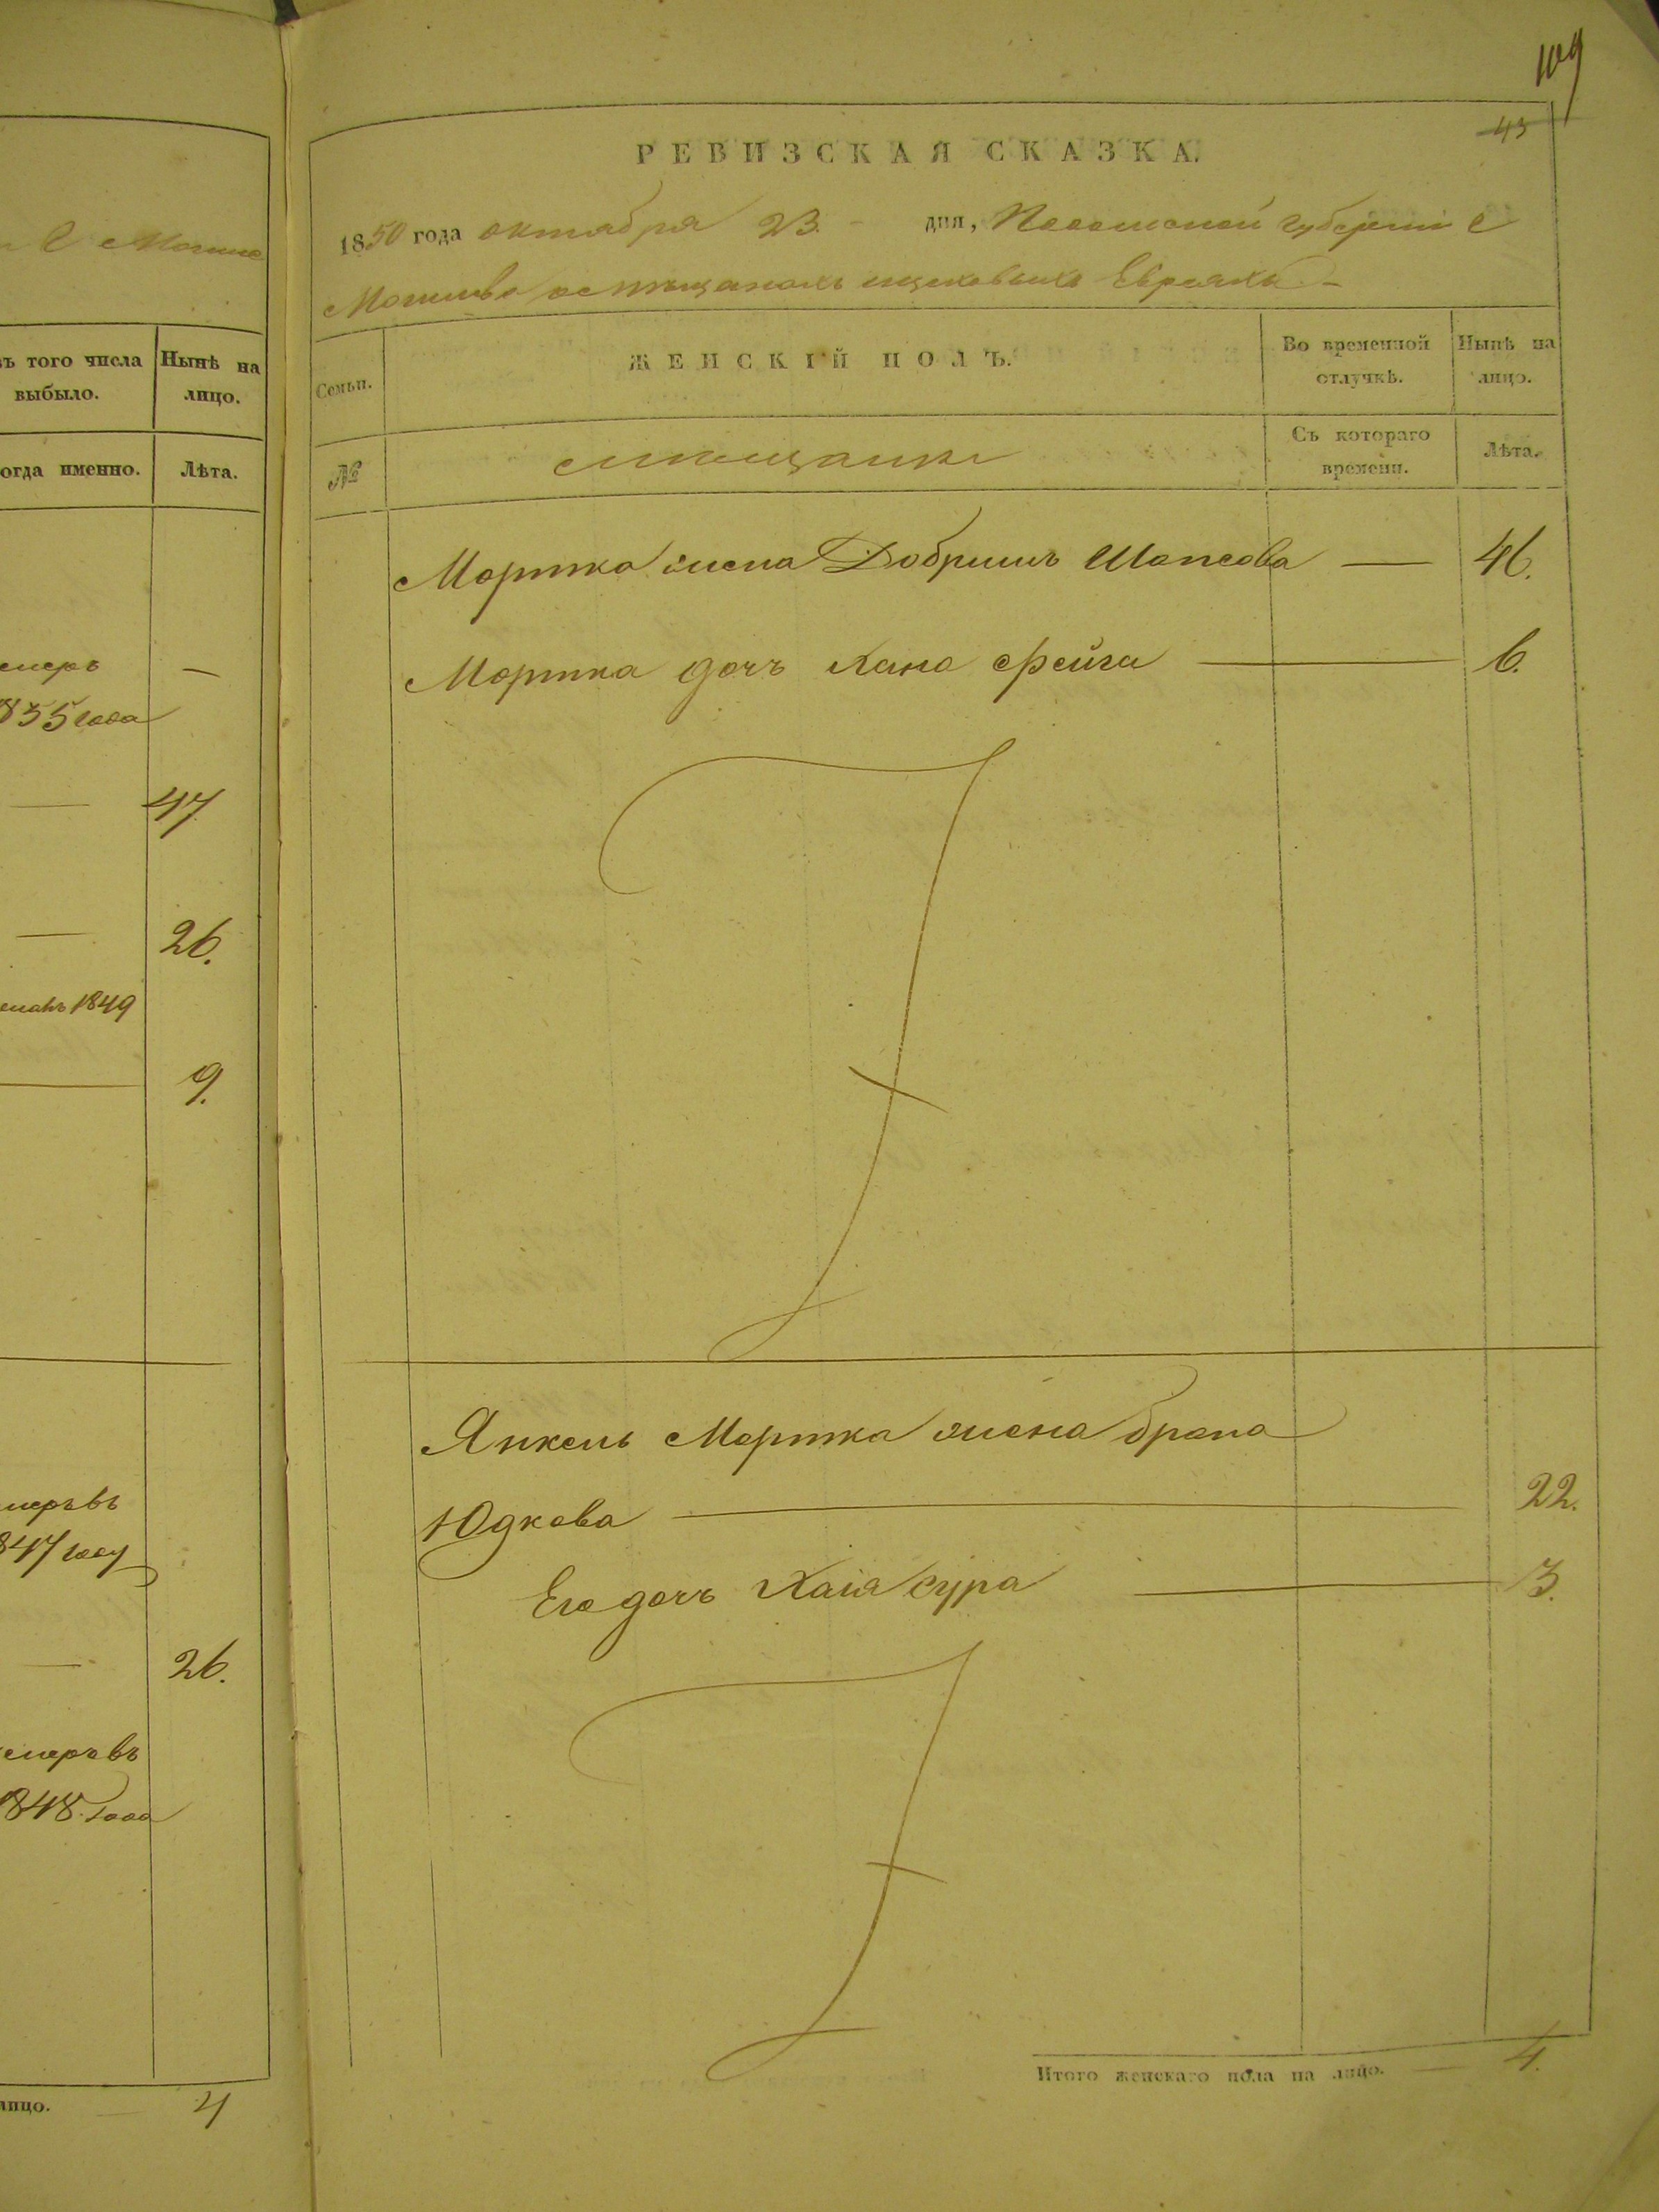 109
43
РЕВИЗСКАЯ СКАЗКА.
1850 года октября 23. дня, Подольской губернии г
Могилева о мещанахъ Евреяхъ
ЖЕНСКІЙ ПОЛЪ.
Во временной отлучкѣ.
Нынѣ на лицо.
Семьи.
№
мещанки
Съ котораго времени.
Лѣта.
Мортка жена Добришъ Шапсова — 46.
Мортка дочь Хана Фейга — 6.
Янкель Мортка жена брана
Юдкова — 22.
Его дочь Хаія Сура — 3.
Итого женскаго пола на лицо. — 4.
г Могиле
въ того числа выбыло.
Нынѣ на лицо.
огда именно.
Лѣта.
умеръ —
835 года
— 47
— 26.
1849
9.
меръ въ
847 году
— 26.
умеръ въ
1848 года
лицо. — 4